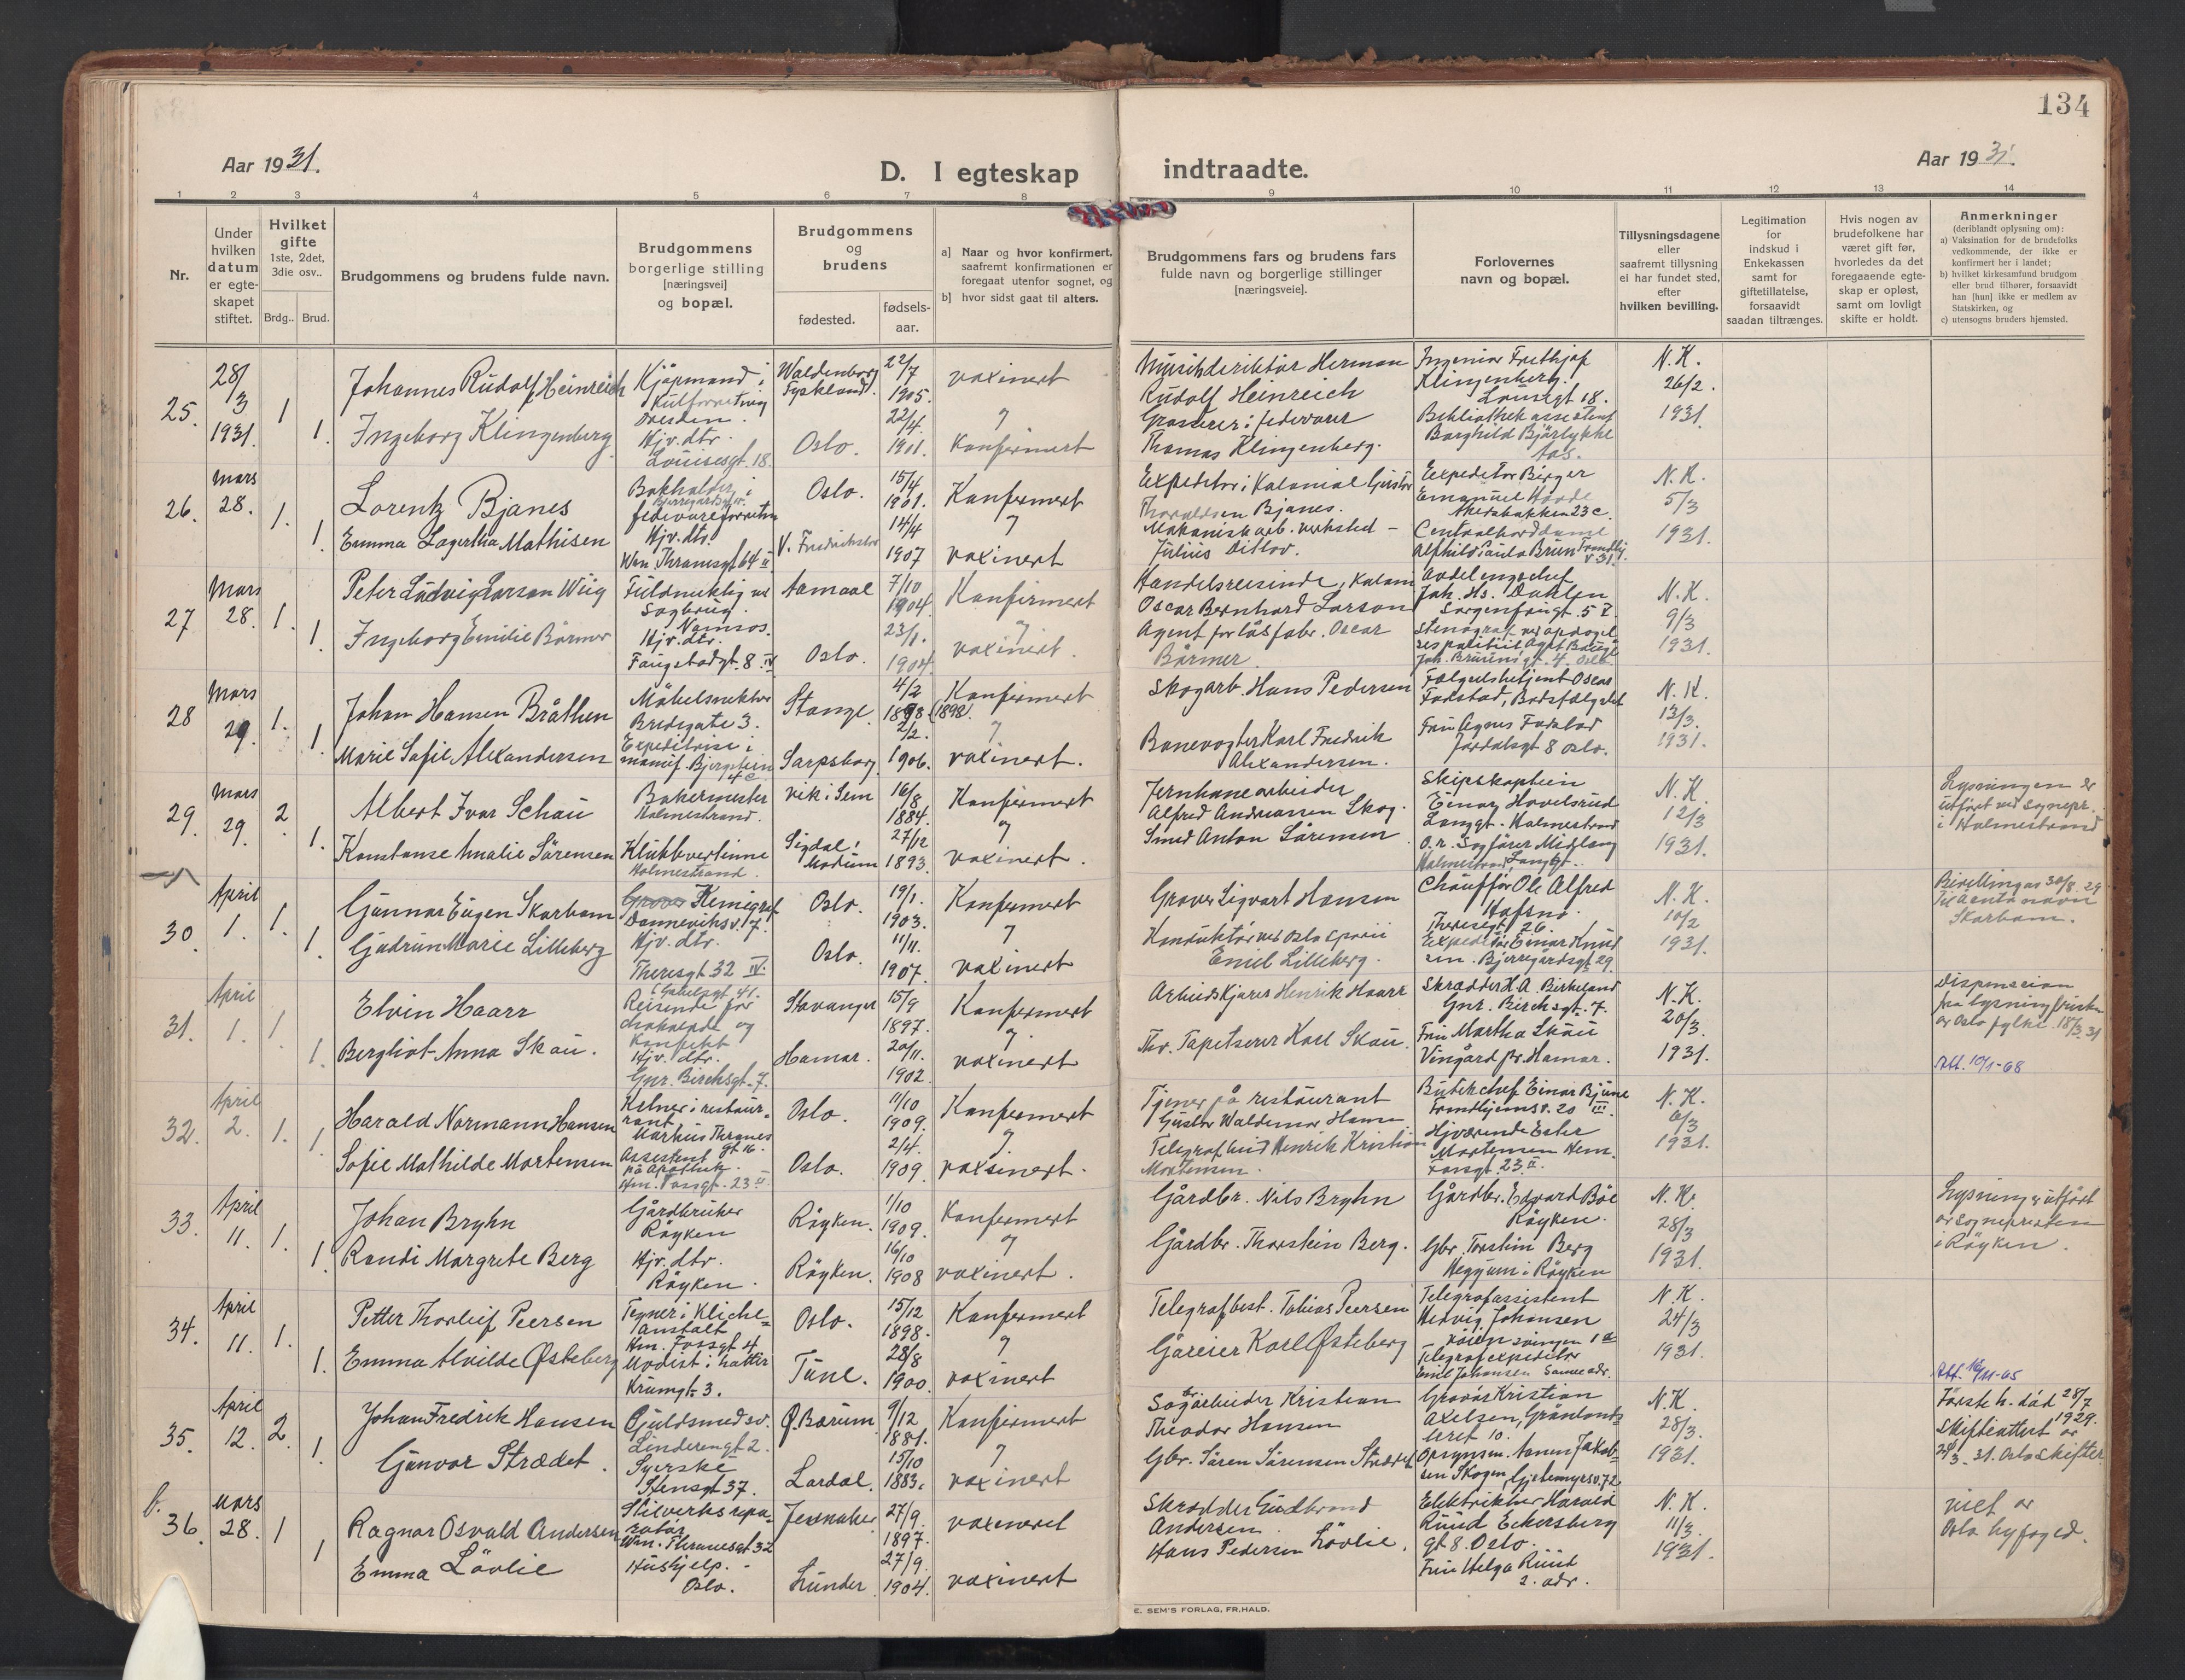 134
Aar 1931.
D. I egteskap
indtraadte.
Aar 1931.
1 2 3 4 5 6 7 8 9 10 11 12 13 14
Nr.
Under hvilken datum er egteskapet stiftet.
Hvilket gifte
1ste, 2det, 3die osv..
Brdg.. Brud.
Brudgommens og brudens fulde navn.
Brudgommens borgerlige stilling [næringsvei] og bopæl.
Brudgommens og brudens
fødested.
fødsels-aar.
a] Naar og hvor konfirmert, saafremt konfirmationen er foregaat utenfor sognet, og
b] hvor sidst gaat til alters.
Brudgommens fars og brudens fars fulde navn og borgerlige stillinger [næringsveie].
Forlovernes navn og bopæl.
Tillysningsdagene eller saafremt tillysning ei har fundet sted, efter hvilken bevilling.
Legitimation for indskud i Enkekassen samt for giftetillatelse, forsaavidt saadan tiltrænges.
Hvis nogen av brudefolkene har været gift før, hvorledes da det foregaaende egteskap er opløst, samt om lovligt skifte er holdt.
Anmerkninger
(deriblandt oplysning om):
a) Vaksination for de brudefolks vedkommende, der ikke er konfirmert her i landet;
b) hvilket kirkesamfund brudgom eller brud tilhører, forsaavidt han [hun] ikke er medlem av Statskirken, og
c) utensogns bruders hjemsted.
25. 28/3 1931. 1 1.
Johannes Rudolf Heinreich
Ingeborg Klingenberg
Kjøpmand i
Dresden.
Hjv. dtr.
Louisesgt. 18.
Waldenborg Tyskland.
Oslo.
22/7 1905.
22/4. 1901.
vaxinert
7
Konfirmert
Musikdirektør Herman
Rudolf Heinreich
Grosserer i fedevarer
Thomas Klingenberg.
Ingeniør Frithjof
Klingenberg.
Louisegt 18.
Bibliothekassistent
Borghild Bjørlykke
Aas.
N. K.
26/2.
1931.
26. Mars 28. 1. 1.
Lorentz Bjanes
Emma Lagertha Mathisen
Bokholder i
Hjv. dtr.
Wm. Thranesgt 64 II
Oslo.
V. Fredrikstad
15/4 1901.
14/4 1907
Konfirmert
7
vaxinert
Expeditør i Kolonial Gustav
Thoraldsen Bjanes.
Mekanisk arb. verksted –
Julius Ditlov.
Expeditør Birger
Emanuel Haade
Akersbakken 23 c.
Centralborddame
Alfhild Paula Brun
N. K.
5/3
1931.
27 Mars 28. 1. 1.
Peter Ludvig Larson Wiig
Ingeborg Emilie Börmer
Fuldmektig ved
Sagbrug.
Namsos.
Hjv. dtr.
Fougstadgt. 8. IV
Aamaal
Oslo.
7/10 1904.
23/1. 1904.
Konfirmert
7
vaxinert.
Handelsreisende, Kolonial
Oscar Bernhard Larson
Agent for låsfabr. Oscar
Börmer
Avdelingschef
Joh. Hs. Dahlen
Sorgenfrigt. 5 I
Joh. Bruunsgt. 4. Oslo.
N. K.
9/3
1931.
28 Mars 29. 1. 1.
Johan Hansen Bråthen
Marie Sofie Alexandersen
Möbelsnekker
Bredegate 3.
Expeditrise i
manuf. Bjergstien
4c
Stange
Sarpsborg.
4/2 1898 (1898).
2/2. 1906.
Konfirmert
7
vaxinert.
Skogarb. Hans Pedersen
Banevogter Karl Fredrik
Alexandersen.
Fængselsbetjent Oscar
Farstad, Botsfængslet
Fru Agnes Farstad
Jordalsgt 8 Oslo.
N. K.
13/3.
1931.
29. Mars 29. 2 1.
Albert Ivar Schau
Konstanse Amalie Sörensen
Bakermester
Holmestrand.
Klubbvertinne
Holmestrand.
vik i Sem
Sigdal!
Modum
16/8 1884.
27/12 1893.
Konfirmert
7
vaxinert.
Jernbanearbeider
Alfred Andreassen Skog.
Smed Anton Sörensen
Skipskaptein
Einar Havelsrud
Langgt. Holmestrand
O. r. Sagförer Midlang
Holmestrand, Langgt..
N. K.
12/3
1931.
Lysningen er
utfört ved sognepr.
i Holmestrand
30. April 1. 1. 1.
Gunnar Eugen Skarbom
Gudrun Marie Lilleberg
Graver Kemigraf
Danneviksv. 17.
Hjv. dtr.
Theresgt 32 IV.
Oslo.
Oslo.
19/1. 1903.
11/11. 1907.
Konfirmert
7
vaxinert
Graver Sigvart Hansen
Konduktör ved Oslo sporvei
Emil Lilleberg.
Chauffør Ole Alfred
Hafsno.
Theresegt 26.
Expeditör Einar Knud
sen. Bjerregårdsgt 29.
N. K.
10/2
1931.
Bevilling av 30/8. 29
til å anta navn
Skarbom.
31. April 1. 1. 1.
Elvin Haarr
Bergliot Anna Skau.
Reisende for
chokolade og
konfekt
Hjv. dtr.
Gnr. Birchsgt. 7.
Stavanger
Hamar.
15/9 1897.
20/11. 1902.
Konfirmert
7
vaxinert
Arbeidskjører Henrik Haarr
Thv. Tapetserer Karl Skau.
Skrædder H. A. Birkeland
Gnr. Birchsgt. 7.
Fru Martha Skau
Vingård pr. Hamar.
N. K.
20/3.
1931.
Dispensasion
fra lysning
av Oslo fylke. 18/3. 31
Att. 10/1-68
32. April 2. 1. 1.
Harald Normann Hansen
Sofie Mathilde Mortensen
Kelner i restaurant
Markus Thranes gt 16.
Assistent
på Apothek.
Hm. Fossgt. 23 II
Oslo.
Oslo.
11/10 1909.
2/4. 1909.
Konfirmert
7
vaxinert.
Tjener på restaurant
Gustav Waldemar Hansen
Telegrafbud Henrik Kristian
Mortensen.
Butikchef Einar Bjune
Trondhjemsv. 20 III.
Hjværende Ester
Mortensen Hm.
Fossgt. 23. II.
N. K.
6/3
1931.
33. April 11. 1. 1.
Johan Bryhn
Randi Margrete Berg
Gårdbruker
Røyken
Hjv. dtr.
Røyken.
Røyken.
Røyken.
1/10 1909.
16/10 1908
Konfirmert
7
vaxinert.
Gårdbr. Nils Bryhn
Gårdbr. Thorstein Berg.
Gårdbr. Edvard Böe
Røyken.
Gbr. Torstein Berg
Heggum i Røyken
N. K.
28/3
1931.
Lysning er utfört
av sognepresten
i Røyken.
34. April 11. 1. 1.
Petter Thorleif Peersen
Emma Alvilde Østeberg
Tegner i Kliche-
anstalt
Hm. Fossgt 4
Modist i hatter
Krumgt. 3.
Oslo.
Tune.
15/12 1898.
28/8 1900.
Konfirmert
7
vaxinert
Telegrafbest. Tobias Peersen
Gåreier Karl Østeberg
Telegrafassistent
Hedvig Johansen
Telegrafexpeditör
Emil Johansen Samme adr.
N. K.
24/3
1931.
35. April 12. 2. 1.
Johan Fredrik Hansen
Gunvor Strædet.
Guldsmedsv.
Linderengt 2.
Syerske
Stensgt 37.
Ø. Bærum
Lardal.
9/12 1881.
15/10 1883.
Konfirmert
7
vaxinert
Sagarbeider Kristian
Theodor Hansen
Gbr. Sören Sörensen Strædet
Gravör Kristian
Axelsen, Grönlands
leret 10.
Opsynsm. Anton Jakob-
sen Skogen, Gjetemyrsv. 72
N. K.
28/3.
1931.
Att. 16/11-65
Förste h. död 28/7 1929.
Skifteattest av
24/3. 31. Oslo Skifter.
b. 36. Mars 28. 1 1
Ragnar Osvald Andersen
Emma Lövlie
Wm. Thranesgt 32
Hushjelp.
Oslo.
Jevnaker
Lunder
27/9. 1897.
27/9. 1904.
vaxineret
vaxinert
Skrædder Gudbrand
Andersen.
Hans Pedersen Lövlie.
Elektriker Harald
Ruud Eckersberg
gt 8. Oslo.
Fru Helga Ruud
s. adr.
N. K.
11/3.
1931.
viet av
Oslo byfoged.
E. SEM'S FORLAG, FR.HALD.